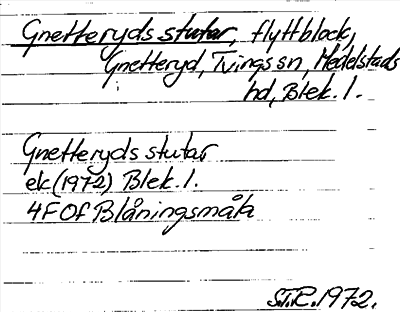 Gnetteryds stutar, flyttblock,
Gnetteryd, Tvings sn, Medelstads
hd, Blek. l.
Gnetteryds stutar
ek (1972) Blek. l.
4F Of Blåningsmåla
St.R. 1972.